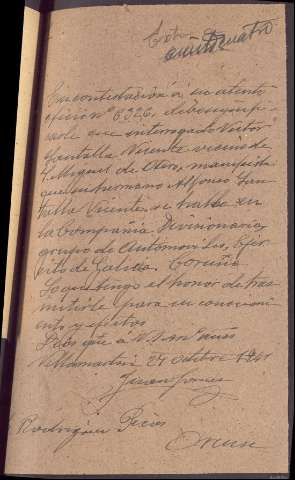 En contestación á su atento
oficio nº 6326, debo
que interrogado Victor
Santalla Vicente vecino de
S. Miguel de Otero, manifiesta
que su hermano Alfonso San-
talla Vicente, se halla en
la Compañia Divisionaria,
grupo de Automoviles, Ejer-
cito de Galicia. Coruña
Lo que tengo el honor de tras-
mitirle para su conocimi-
ento y efectos
Dios que á V. años
Villamartin 27 octubre
Rodriguez
Orense